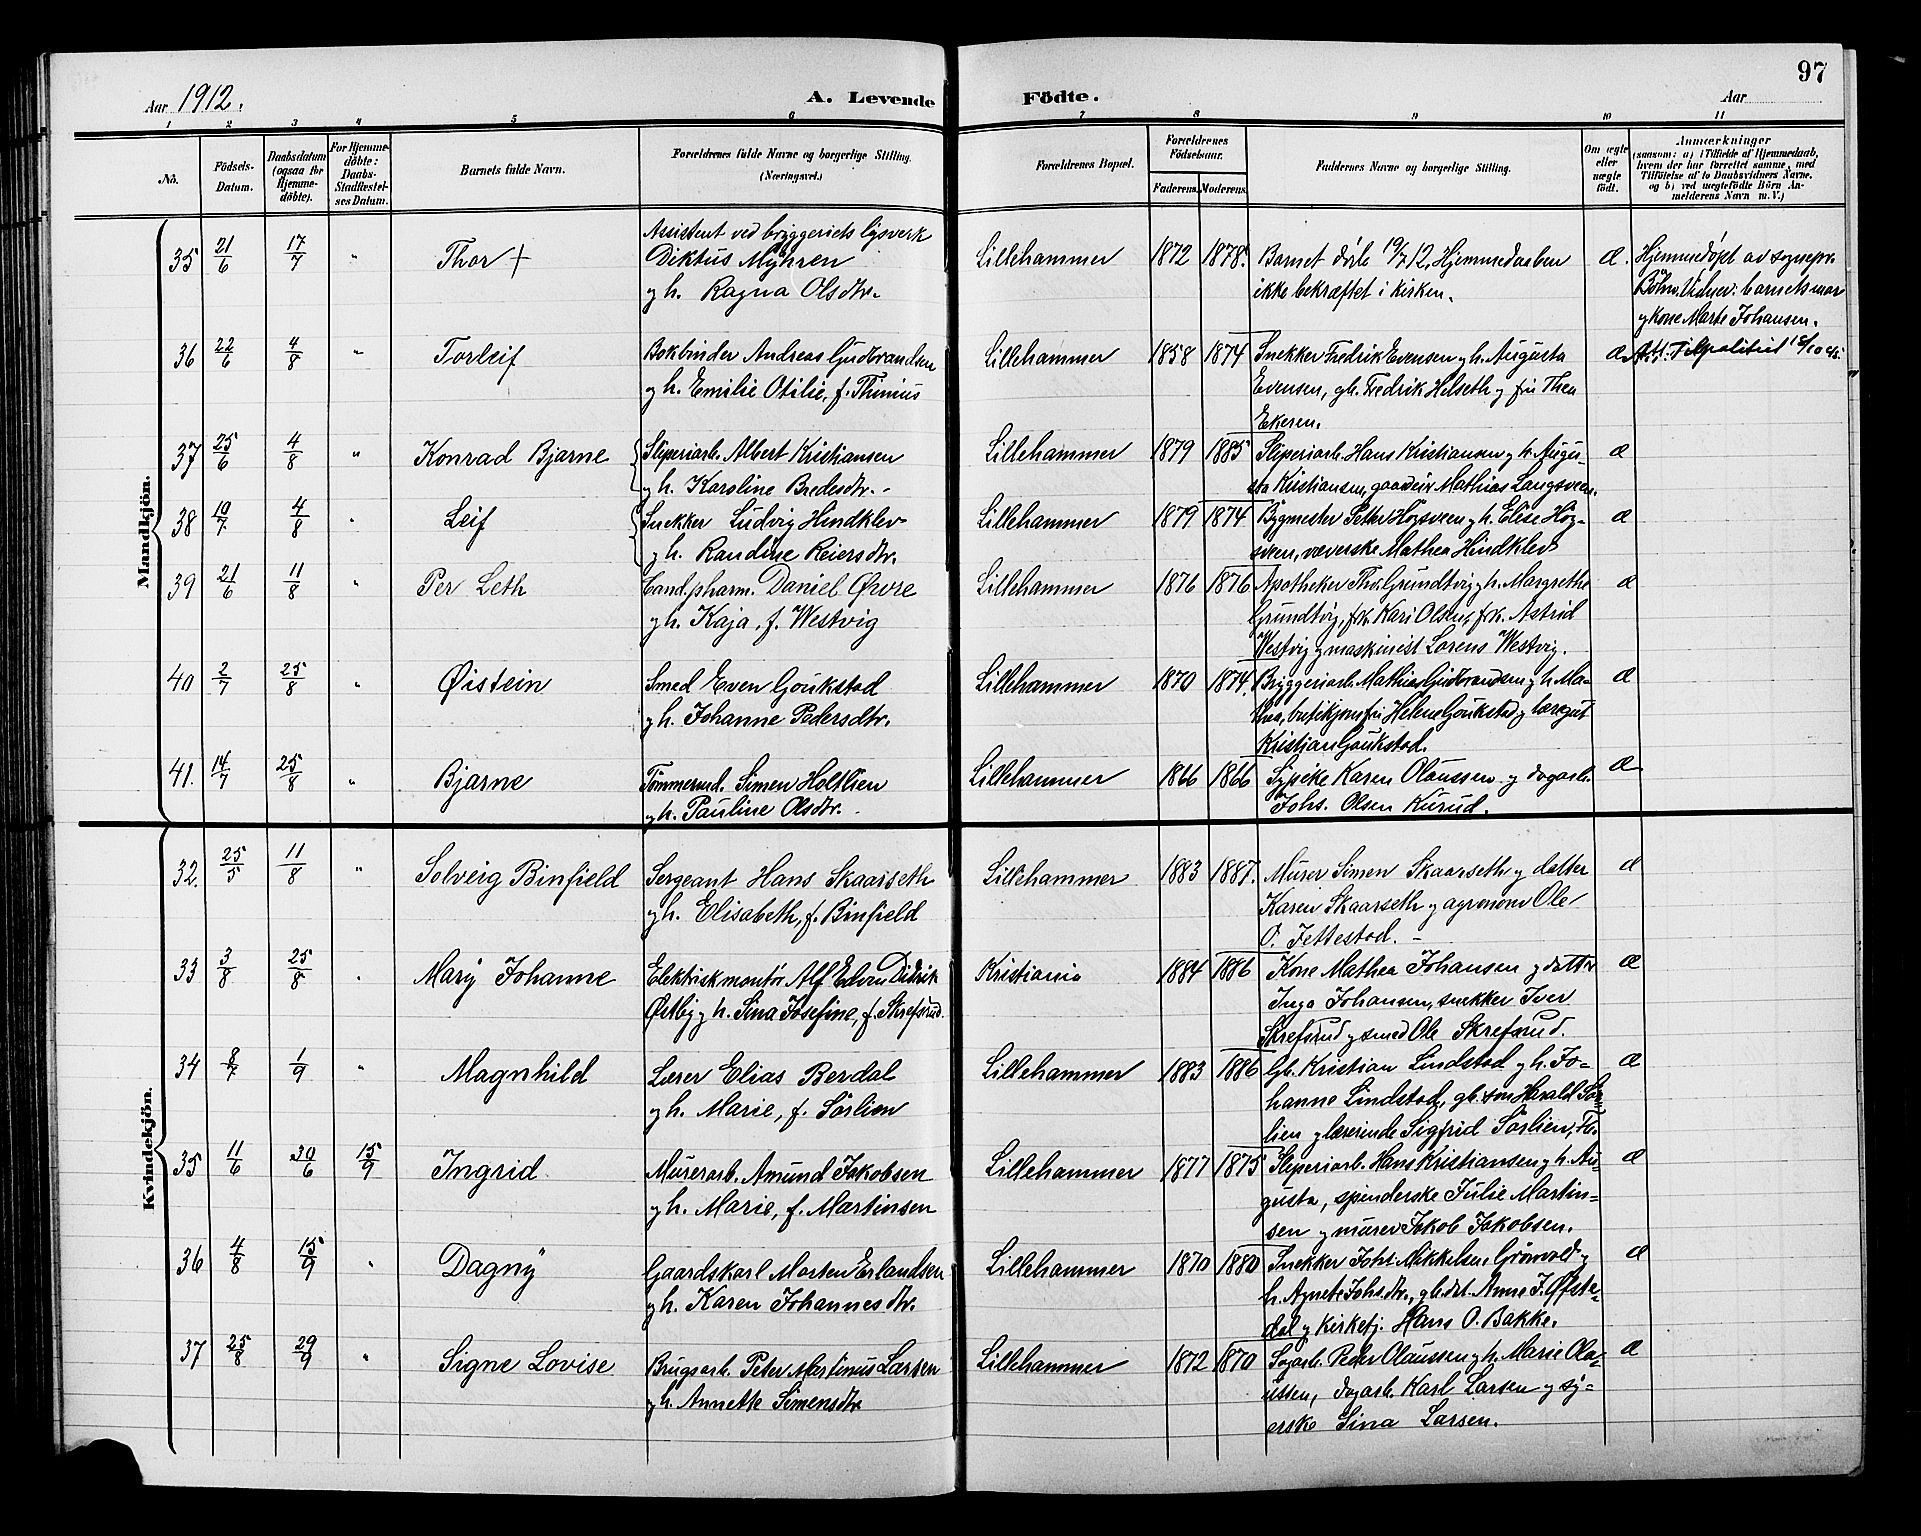 97
Aar 1912.
A. Levende Födte.
Aar
1 2 3 4 5 6 7 8 9 10 11
No.
Födsels-Datum.
Daabsdatum (ogsaa for Hjemme-döbte).
For Hjemme-döbte: Daabs-Stadfæstel-ses Datum.
Barnets fulde Navn.
Forældrenes fulde Navne og borgerlige Stilling.
(Næringsvei.)
Forældrenes Bopæl.
Forældrenes Födselsaar.
Faderens. Moderens.
Faddernes Navne og borgerlige Stilling.
Om ægte eller uægte födt.
Anmærkninger
(saasom: a) i Tilfælde af Hjemmedaab, hvem der har forrettet samme, med Tilföielse af to Daabsvidners Navne. og b) ved uægtefödte Börn An-melderens Navn m.V.)
Mandkjön.
35 21/6 17/7 " Thor +
Assistent ved bryggeriets lysverk
Diktus Myhren
og h. Ragna Olsdtr.
Lillehammer 1872 1878.
Barnet døde 19/7 12, Hjemmedaaben
ikke bekræftet i kirken.
æ.
Hjemmedøpt av sognepr.
Böhn. Vidner: barnets mor
og kone Marte Johansen.
36 22/6 4/8 " Torleif
Bokbinder Andreas Gudbrandsen
og h. Emilie Otilie, f. Thinius
Lillehammer 1858 1874
Snekker Fredrik Evensen og h. Augusta
Evensen, gb. Fredrik Helseth og fru Thea
Ekeren.
æ
37 25/6 4/8 " Konrad Bjarne
Sliperiarb. Albert Kristiansen
og h. Karoline Bredesdtr.
Lillehammer 1879 1885
Sliperiarb. Hans Kristiansen og h. Augu-
sta Kristiansen, gaardeier Mathias Langsveen.
æ
38 10/7 4/8 " Leif
Snekker Ludvig Hindklev
og h. Randine Reiersdtr.
Lillehammer 1879 1874
Bygmester Petter Högsveen og h. Elise Hög-
sveen, væverske Mathea Hindklev
æ
39 21/6 11/8 " Per Leth
Cand. pharm. Daniel Øvre
og h. Kaja, f. Westvig
Lillehammer 1876 1876
Apotheker Thv. Grundtvig og h. Margrethe
Grundtvig, frk. Kari Olsen, frk. Astrid
Westvig og maskinist Lorens Westvig.
æ
40 2/7 25/8 " Øistein
Smed Even Goukstad
og h. Johanne Pedersdtr.
Lillehammer 1870 1874
Bryggeriarb. Mathias Gudbrandsen og h. Ma-
thea, butikjomfru Helene Goukstad og læregut
Kristian Goukstad.
æ
41. 14/7 25/8 " Bjarne
Tömmermd. Simen Holtlien
og h. Pauline Olsdtr.
Lillehammer 1866 1866
Sypike Karen Olaussen og dagarb.
Johs. Olsen Kurud.
æ
Kvindekjön.
32. 25/5 11/8 " Solveig Binfield
Sergeant Hans Skaarseth
og h. Elisabeth, f. Binfield
Lillehammer 1883 1887.
Murer Simen Skaarseth og datter
Karen Skaarseth og agronom Ole
O. Jettestad.
æ
33 3/8 25/8 " Mary Johanne
Elektriskmontör Alf Edvin Didrik
Østby og h. Sina Josefine, f. Skrefsrud.
Kristiania 1884 1886
Kone Mathea Johansen og datter
Inga Johansen, snekker Iver
Skrefsrud og smed Ole Skrefsrud.
æ
34 8/7 1/9 " Magnhild
Lærer Elias Berdal
og h. Marie, f. Sörlien
Lillehammer 1883 1886
Gb. Kristian Lindstad og h. Jo-
hanne Lindstad, gb. sön Harald Sör-
lien og lærerinde Sigfrid Sörlien, Fb.
æ
35 11/6 30/6 15/9 Ingrid
Murerarb. Amund Jakobsen
og h. Marie, f. Martinsen
Lillehammer 1877 1875
Sliperiarb. Hans Kristiansen og h. Au-
gusta, spinderske Julie Martin-
sen og murer Jakob Jakobsen.
æ
36 4/8 15/9 " Dagny
Gaardskarl Morten Erlandsen
og h. Karen Johannesdtr.
Lillehammer 1870 1880
Snekker Johs. Mikkelsen Grönvold og
h. Agnete Johsdtr., gb.dat. Anne J. Øfste-
dal og kirketj. Hans O. Bakke.
æ
37 25/8 29/9 " Signe Lovise
Brugsarb. Peter Martinus Larsen
og h. Annette Simensdtr
Lillehammer 1872 1870
Sagarb. Peder Olaussen og h. Marie Ola-
ussen, dagarb. Karl Larsen og sy-
erske Sina Larsen.
æ